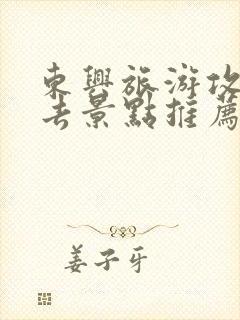 東興旅游攻
去景點推薦
姜子牙